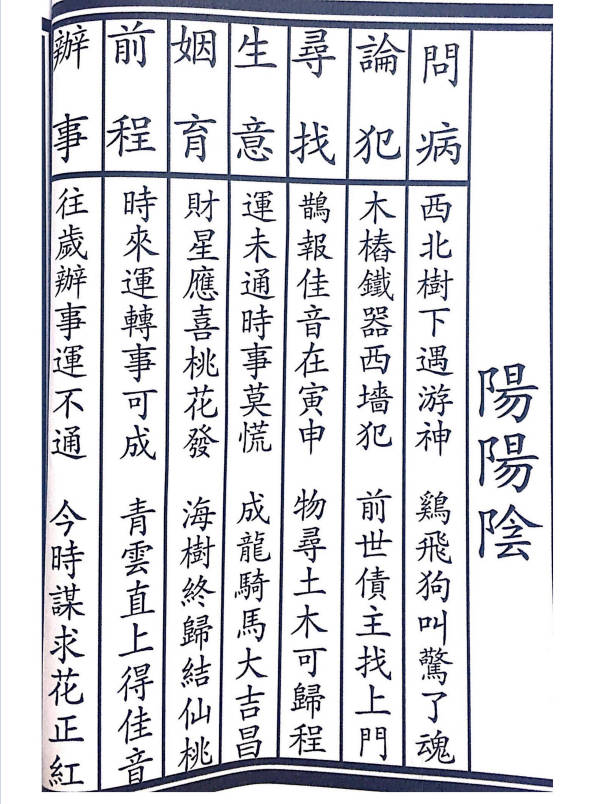 陽陽陰
問病 西北樹下遇游神 鷄飛狗叫驚了魂
論犯 木樁鐵器西墻犯 前世債主找上門
尋找 鵲報佳音在寅申 物尋土木可歸程
生意 運未通時事莫慌 成龍騎馬大吉昌
姻育 財星應喜桃花發 海樹終歸結仙桃
前程 時來運轉事可成 青雲直上得佳音
辦事 往歲辦事運不通 今時謀求花正紅